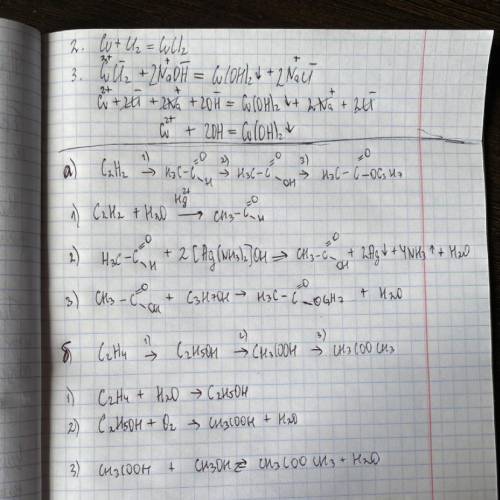 2. Cu + Cl2 = CuCl2
3. Cu²⁺Cl⁻2 + 2Na⁺OH⁻ = Cu(OH)2↓ + 2Na⁺Cl⁻
Cu²⁺ + 2Cl⁻ + 2Na⁺ + 2OH⁻ = Cu(OH)2↓ + 2Na⁺ + 2Cl⁻
Cu²⁺ + 2OH = Cu(OH)2↓
а) C2H2 →1) H3C-C(=O)-H →2) H3C-C(=O)-OH →3) H3C-C(=O)-OC3H7
1) C2H2 + H2O →Hg²⁺ CH3-C(=O)-H
2) H3C-C(=O)-H + 2[Ag(NH3)2]OH ⇒ CH3-C(=O)-OH + 2Ag↓ + 4NH3↑ + H2O
3) CH3-C(=O)-OH + C3H7OH → H3C-C(=O)-OC3H7 + H2O
б) C2H4 →1) C2H5OH →2) CH3COOH →3) CH3COOCH3
1) C2H4 + H2O → C2H5OH
2) C2H5OH + O2 → CH3COOH + H2O
3) CH3COOH + CH3OH ⇄ CH3COOCH3 + H2O